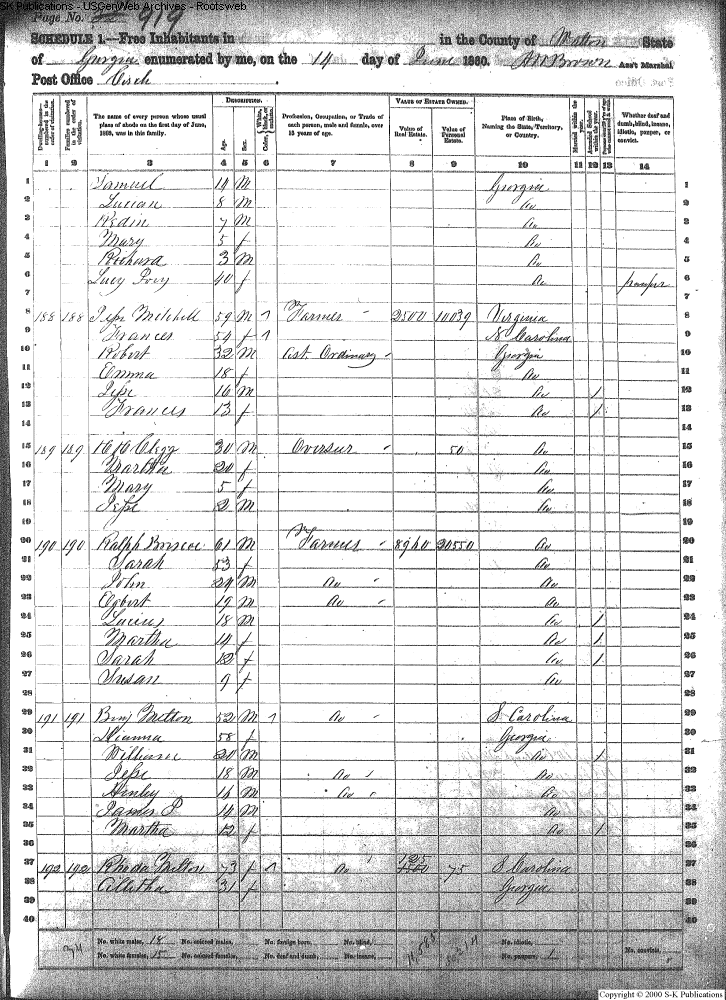 S-K Publications - USGenWeb Archives - Rootsweb
Page No. 919
SCHEDULE 1.—Free Inhabitants in in the County of Walton State
of Georgia enumerated by me, on the 14 day of June 1860. Brown Ass't Marshal
Post Office
Dwelling-houses—numbered in the order of visitation.
Families numbered in the order of visitation.
The name of every person whose usual place of abode on the first day of June, 1860, was in this family.
DESCRIPTION.
Age.
Sex.
Color,
Profession, Occupation, or Trade of each person, male and female, over 15 years of age.
VALUE OF ESTATE OWNED.
Value of Real Estate.
Value of Personal Estate.
Place of Birth, Naming the State, Territory, or Country.
Married within the year.
Attended School within the year.
Whether deaf and dumb, blind, insane, idiotic, pauper, or convict.
1 2 3 4 5 6 7 8 9 10 11 12 13 14
1 Samuel 14 M Georgia 1
2 Lucian 8 M Do 2
3 7 M Do 3
4 Mary 5 f Do 4
5 Richard 3 M Do 5
6 Lucy 40 f Do pauper 6
7 7
8 188 188 Jesse Mitchell 59 M 1 Farmer 2500 10039 Virginia 8
9 Frances 54 f 1 N Carolina 9
10 Robert 32 M Ordinary Georgia 10
11 Emma 18 f Do 11
12 Jesse 16 M Do 1 12
13 Frances 13 f Do 1 13
14 14
15 189 189 Clegg 30 M Overseer 50 Do 15
16 Martha 20 f Do 16
17 Mary 5 f Do 17
18 Jesse 2 M Do 18
19 19
20 190 190 Ralph Briscoe 61 M Farmer 8960 20550 Do 20
21 Sarah 53 f Do 21
22 John 24 M Do Do 22
23 Egbert 19 M Do Do 23
24 Lucius 18 M Do 1 24
25 Martha 14 f Do 1 25
26 Sarah 12 f Do 1 26
27 Susan 9 f Do 27
28 28
29 191 191 Benj Melton 52 M 1 Do S Carolina 29
30 58 f Georgia 30
31 William 20 M Do 1 31
32 Jesse 18 M Do Do 32
33 16 M Do Do 33
34 James P 14 M Do 34
35 Martha 12 f Do 1 35
36 36
37 192 192 Rhoda Melton 73 f 1 Do 125 75 S Carolina 37
38 31 f Georgia 38
39 39
40 40
No. white males, 18 No. colored males, No. foreign born, No. blind, No. idiotic, No. convicts,
No. white females, 15 No. colored females, No. deaf and dumb, No. insane, No. paupers, 1
Copyright © 2000 S-K Publications